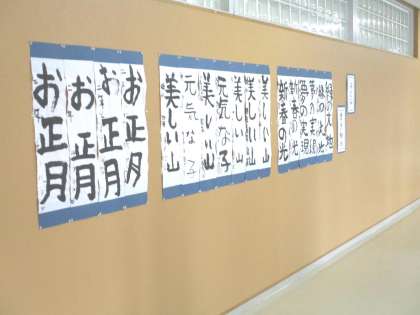 お正月
お正月
お正月
お正月
美しい山
元気な子
美しい山
元気な子
美しい山
美しい山
美しい山
新春の光
新春の光
夢の実現
夢の実現
緑の大地
緑の大地